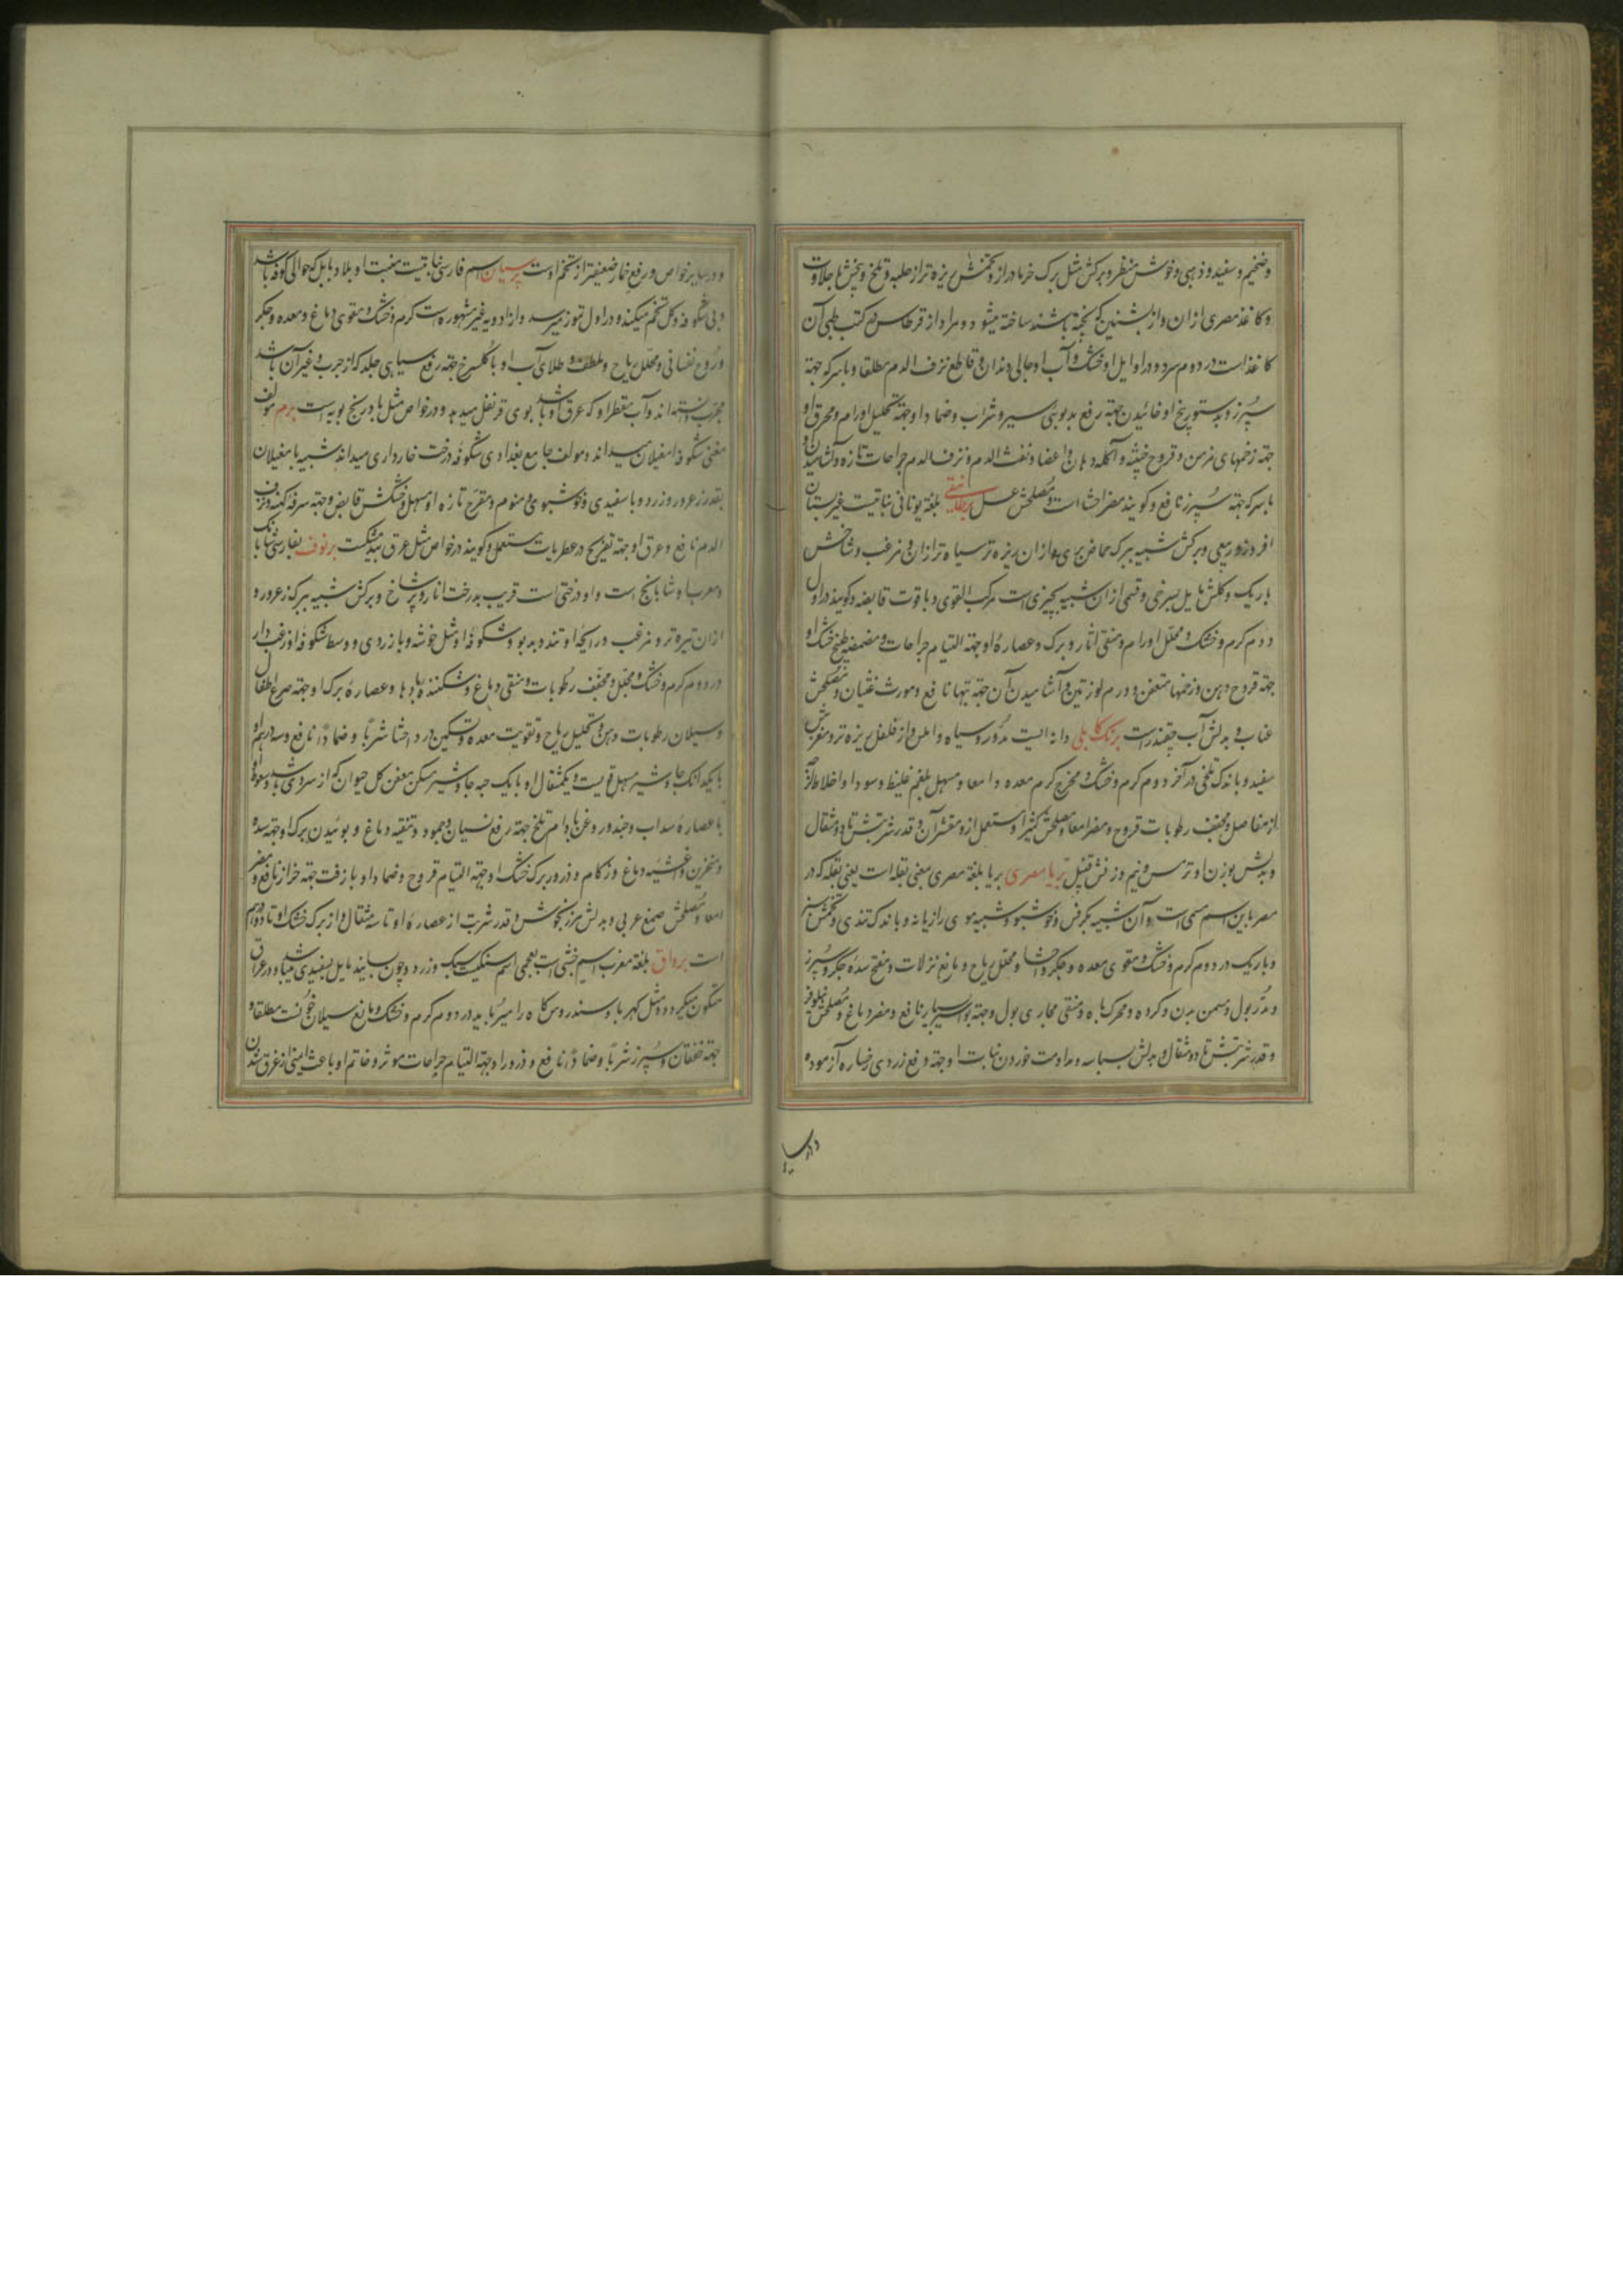 وضخیم و سفید و ذهبی و خوش منظر و برکش مثل برک خرما دراز و تخمش ریزه تر از حلبه و تلخ و بیخش با حلاوت
و کاغذ مصری از آن و از بشنین که پخته باشند ساخته میشود و مراد از قرطاس در کتب طبی آن
کاغذ است در دوم سرد و در اوایل او خشک و آب او جالی دندان و قاطع نزف الدم مطلقا و با سرکه جهة
سپرز و بدستور بیخ او خائیدن جهة رفع بدبوئی سیر و شراب و ضماد او جهة تحلیل اورام و محرق او
جهة زخمهای مزمن و قروح خبیثه و آکله دهان و اعضا و نفث الدم و نزف الدم جراحات تازه و آشامیدن او
با سرکه جهة سپرز نافع و کویند مضر احشا است و مصلحش عسل برطانیقی بلغة یونانی نباتیست غیر بستان
افروز و ربیعی و برکش شبیه ببرک حماض بری و از آن ریزه تر سیاه تر از آن و مزغب و شاخش
باریک و کلش مایل بسرخی و قسمی از آن شبیه بچیزی است مرکب القوی و با قوت قابضه و کویند در اول
دوم کرم و خشک و محلل اورام و منقی آثار و برک و عصاره او جهة التیام جراحات و مضمضه طبیخ خشک او
جهة قروح دهن و زخمها متعفن و ورم لوزتین و آشامیدن آن جهة تبها نافع و مورث غثیان و مصلحش
عناب و بدلش آب چقندر است برنک کابلی دانه ایست مدور و سیاه و املس و از فلفل ریزه تر و مغزش
سفید و با اندک تلخی در آخر دوم کرم و خشک و مخرج کرم معده و امعا و مسهل بلغم غلیظ و سودا و اخلاط لزج
از مفاصل و مجفف رطوبات قروح و مضر امعا و مصلحش کثیرا و مستعمل از او مقشر آن و قدر شربتش تا دو مثقال
و بدلش بوزن او ترمس و نیم وزنش قنبیل بریا مصری بریا بلغة مصری بمعنی بقله است یعنی بقله که در
مصر باین اسم مسمی است و آن شبیه بکرفس و خوشبو و شبیه ببوی رازیانه و با اندک تندی و تخمش سبز
و باریک در دوم کرم و خشک و مقوی معده و جکر و احشا و محلل ریاح و مانع نزلات و مفتح سده جکر و سپرز
و مدر بول و مسمن بدن و کرده و محرک باه و منقی مجاری بول و جهة بواسیر نافع و مضر دماغ و مصلحش نیلوفر
و قدر شربتش تا دو مثقال و بدلش بسباسه و مداومت خوردن نبات او جهة رفع زردی رخساره آزموده
و در سایر
و در سایر خواص و رفع خمار ضعیفتر از تخم اوست پرسیان اسم فارسی نباتیست منبت او بلاد بابل که حوالی کوفه باشد
و بی شکوفه و کل تخم میکند و در اول تموز میرسد و از ادویه غیر مشهوره است کرم و خشک و مقوی دماغ و معده و جکر
و روح نفسانی و محلل ریاح و ملطف و طلای آب او با کلسرخ جهة رفع سیاهی جلد که از جرب و غیر آن باشد
مجرب دانسته اند و آب مقطر او که عرق او باشد بوی قرنفل میدهد و در خواص مثل بادرنجبویه است برم مؤلف
مغنی شکوفه امغیلان میداند و مولف جامع بغدادی شکوفه درخت خارداری میداند شبیه بامغیلان
بقدر زعرور و زرد و با سفیدی و خوشبوی و منوم و مفرح تازه او مسهل و خشکش قابض و جهة سرفه کهنه و نزف
الدم نافع و عرق او جهة تفریح در عطریات مستعمل و کویند در خواص مثل عرق بیدمشکست برنوف بفارسی شابانک
و معرب او شابانج است و او درختی است قریب بدرخت انار و پر شاخ و برکش شبیه ببرک زعرور و
از آن تیره تر و مزغب و رایحه او تند و بدبو و شکوفه او مثل خوشه و با زردی و وسط شکوفه او زغب دار
در دوم کرم و خشک و محلل و مجفف رطوبات و منقی دماغ و شکننده بادها و عصاره برک او جهة صرع اطفال
و سیلان رطوبات دهن و تحلیل ریاح و تقویت معده و تسکین درد احشا شربا و ضمادا نافع و سه درهم او
با یکدانک جاوشیر مسهل قویست و یکمثقال او با یک حبه جاوشیر مسکن مغص کل حیوان که از سردی باشد و سعوط او
با عصاره سداب و جندور و غن بادام تلخ جهة رفع نسیان و جمود و تنقیه دماغ و بوئیدن برک او جهة سده
و منخرین و اغشیه دماغ و زکام و ذرور برک خشک او جهة التیام قروح و ضماد او با زفت جهة خراز نافع و مضر
امعا و مصلحش صمغ عربی و بدلش مرزنجوش و قدر شربت از عصاره او تا سه مثقال و از برک خشک او تا دو درهم
است برواق بلغة مغرب اسم خنثی است بعجمی اسم سنکیست سبک و زرد و چون بسایند مایل بسفیدی میباشد و در عراق
متکون میکردد و مثل کهربا و سندروس کاه را میرباید در دوم کرم و خشک و مانع سیلان خونست مطلقا و
جهة خفقان و سپرز شربا و ضمادا نافع و ذرور او جهة التیام جراحات موثر و خاتم او باعث ایمنی از غرق شدن